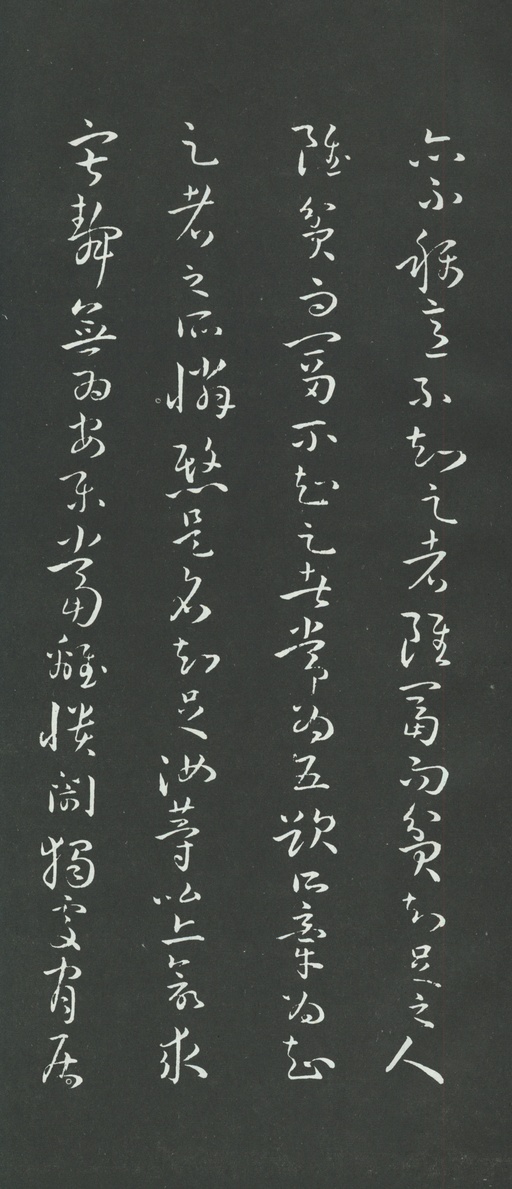 亦不稱意不知足者雖富而貧知足之人
雖貧而富不知足者常為五欲所牽為知
足者之所憐愍是名知足汝等比丘求
寂靜無為安樂當離憒閙獨處閑居